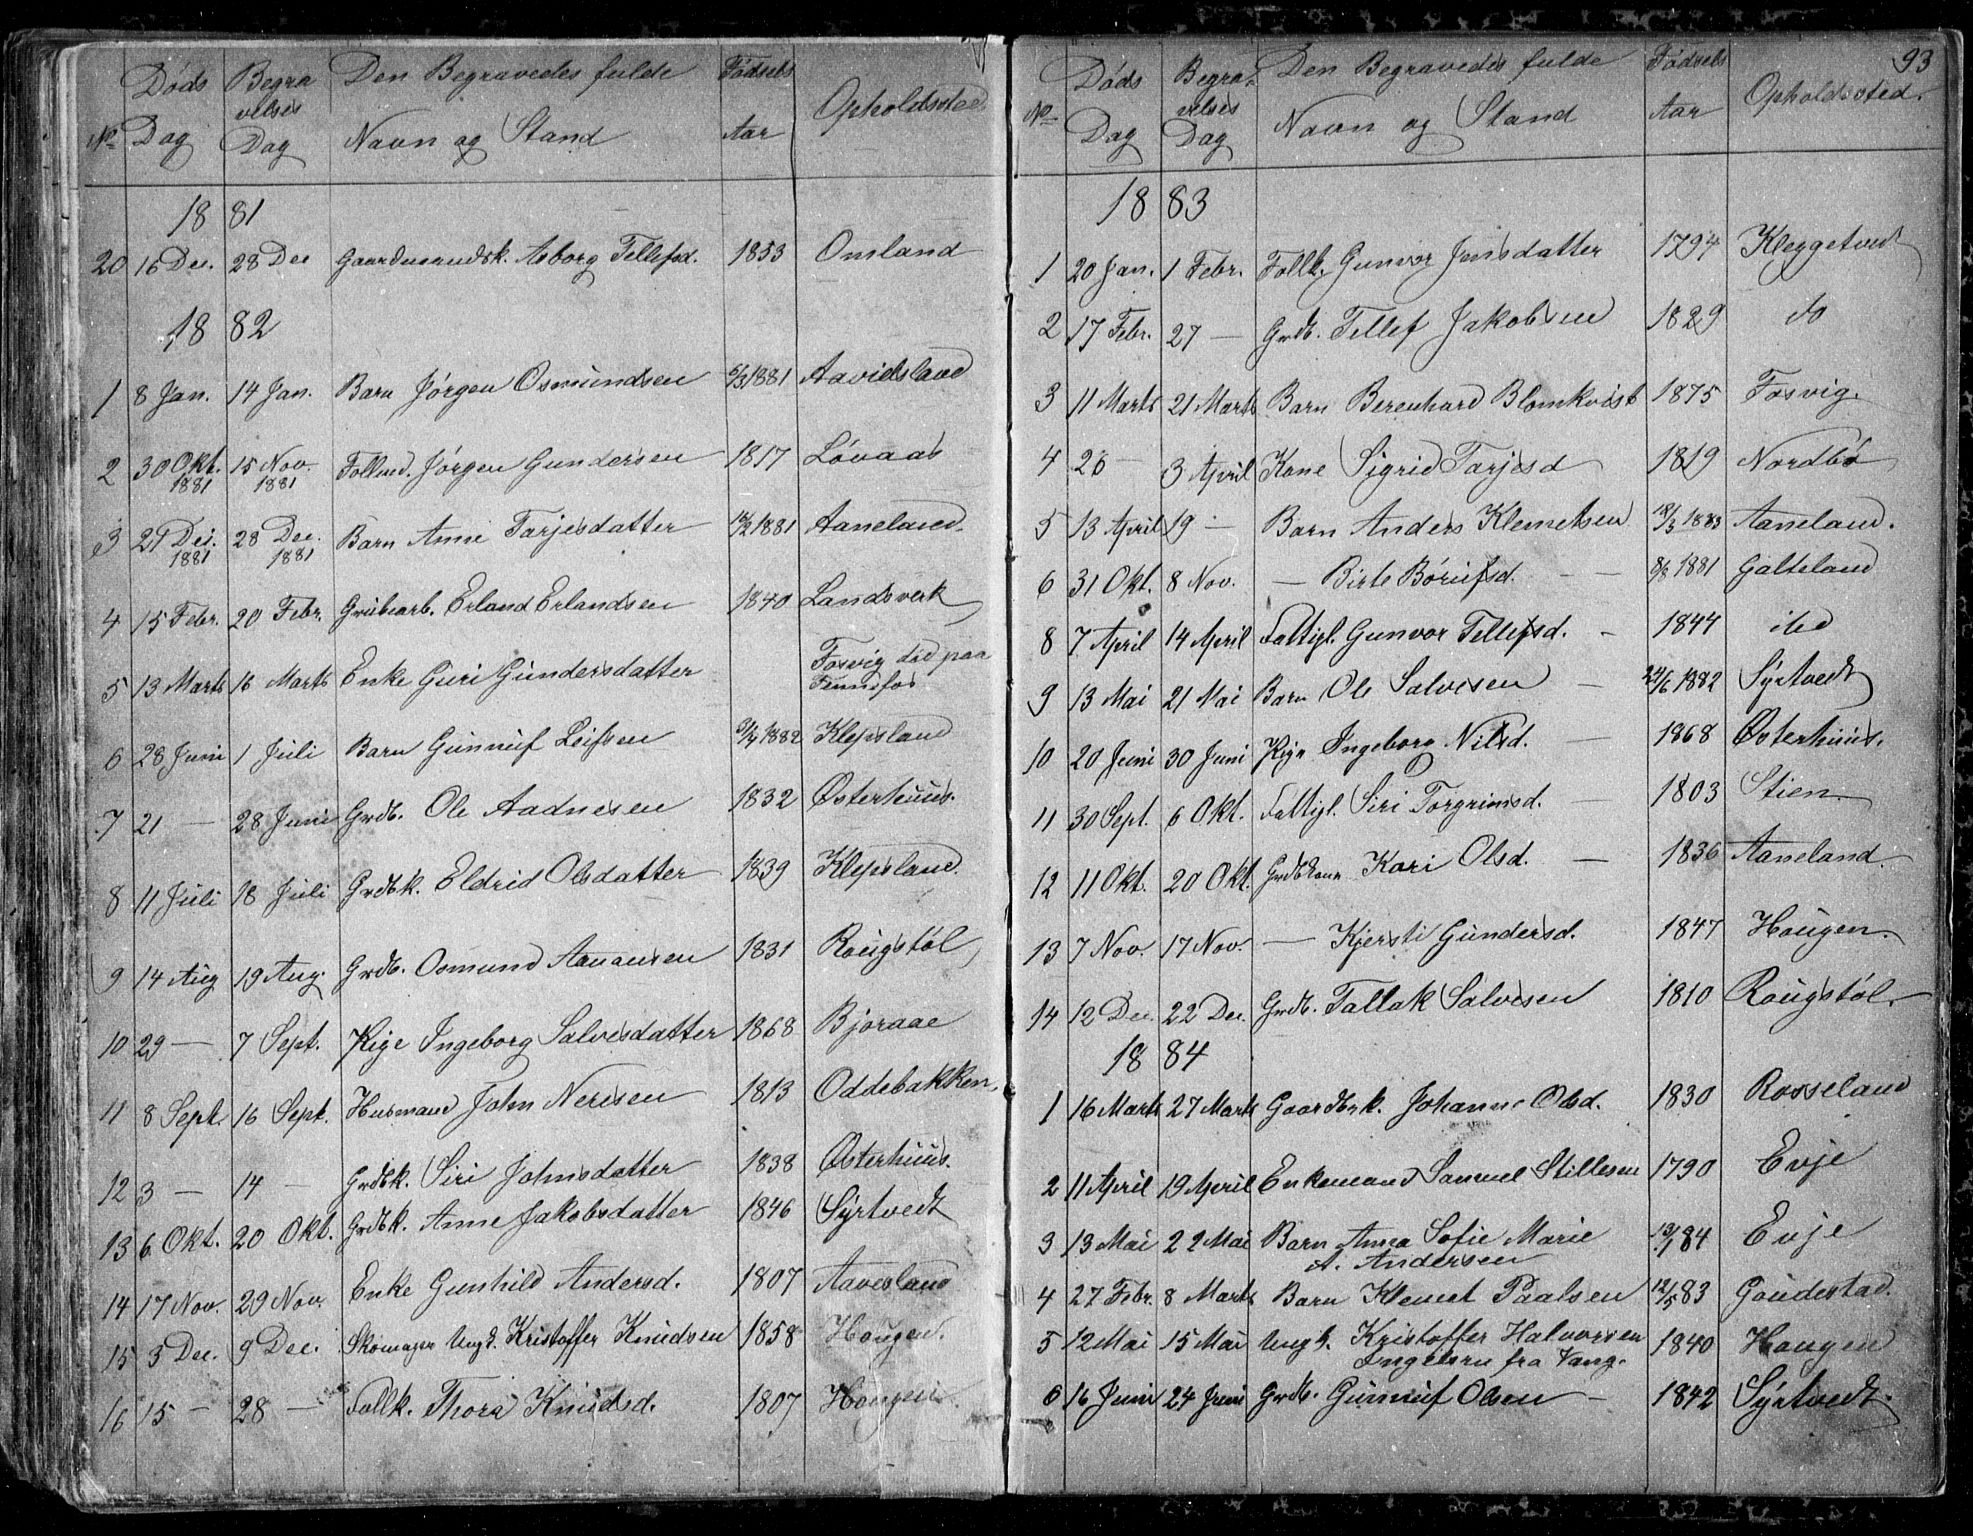 Døds Begra Den Begravedes fulde Fødsels
velses Opholdssted
No Dag Dag Navn og Stand Aar
1881
20 16 Dec. 28 Dec Gaardmandsk. Asborg Tellefsd. 1853 Omland
1882
1 8 Jan. 14 Jan. Barn Jørgen Osmundsen 1881 Aavidsland
2 30 Okt. 15 Nov. Jørgen Gundersen 1817 Løvaas
1881 1881
3 21 Dec. 28 Dec. Barn Anne Tarjesdatter 1881 Aaneland.
1881 1881
4 15 Febr. 20 Febr. Grubearb. Erland Erlandsen 1840 Landsverk
5 13 Marts 16 Marts Enke Guri Gundersdatter Fosvig død paa
Fennefos
6 28 Juni 1 Juli Barn Gunnuf Leifsen 1882 Klepsland
7 21 — 28 Juni Grdb. Ole Aadnesen 1832 Østerhuus.
8 11 Juli 18 Juli Grdbk. Eldrid Olsdatter 1839 Klepsland.
9 14 Aug 19 Aug. Grdb. Osmund Aanansen 1831 Rougstøl
10 29 — 7 Sept. Pige Ingeborg Salvesdatter 1868 Bjoraae
11 8 Sept. 16 Sept. Husmand John Nerisen 1813 Oddebakken
12 3 — 14 — Grdbk. Siri Johnsdatter 1838 Østerhuus.
13 6 Okt. 20 Okt. Grdbk. Anne Jakobsdatter 1846 Syrtvedt
14 17 Nov. 29 Nov. Enke Gunhild Andersd. 1807 Aavesland
15 3 Dec. 9 Dec. Skomager Ungk. Kristoffer Knudsen 1858 Hougen.
16 15 — 28 — Follk. Thora Knudsd. 1807 Hougen.
93
Døds Begra- Den Begravedes fulde Fødsels
velses Opholdssted.
No Dag Dag Navn og Stand Aar
1883
1 20 Jan. 1 Febr. Follk. Gunvor Jensdatter 1794 Kleggetvedt
2 17 Febr. 27 — Grdb. Tellef Jakobsen 1829 do
3 11 Marts 21 Marts Barn Berenhard Blomkvist 1875 Fosvig.
4 26 — 3 April Kone Sigrid Tarjesd 1819 Nordbø
5 13 April 19 — Barn Anders Klemetsen 1883 Aaneland.
6 31 Okt. 8 Nov. — Birte Børufsd. — — 8/8 1881 Galteland
8 7 April 14 April Fattigl. Gunvor Tellefsd. — 1844 ibd
9 13 Mai 21 Mai Barn Ole Salvesen — 24/6 1882 Syrtvedt
10 20 Juni 30 Juni Pige Ingeborg Nilsd. — 1868 Østerhuus.
11 30 Sept. 6 Okt. Fattigl. Siri Torgrimsd. — 1803 Stien.
12 11 Okt. 20 Okt. Grdbkone Kari Olsd. — 1836 Aaneland.
13 7 Nov. 17 Nov. — Kjersti Gundersd. 1847 Hougen.
14 12 Dec. 22 Dec. Grdb. Tallak Salvesen 1810 Rougstøl.
1884
1 16 Marts 27 Marts Gaardbrk. Johanne Olsd. 1830 Rosseland
2 11 April 19 April Enkemand Samuel Stillesen 1790 Evje
3 13 Mai 22 Mai Barn Anna Sofie Marie 13/1 84 Evje
A. Andersen
4 27 Febr. 8 Marts Barn Klemet Paalsen 12/5 83 Gaudestad.
5 12 Mai 15 Mai Ungk. Kristoffer Halvorsen 1840 Hougen
Engelsen fra Vang.
6 16 Juni 24 Juni Grdb. Gunnuf Olsen — 1842 Syrtvedt.